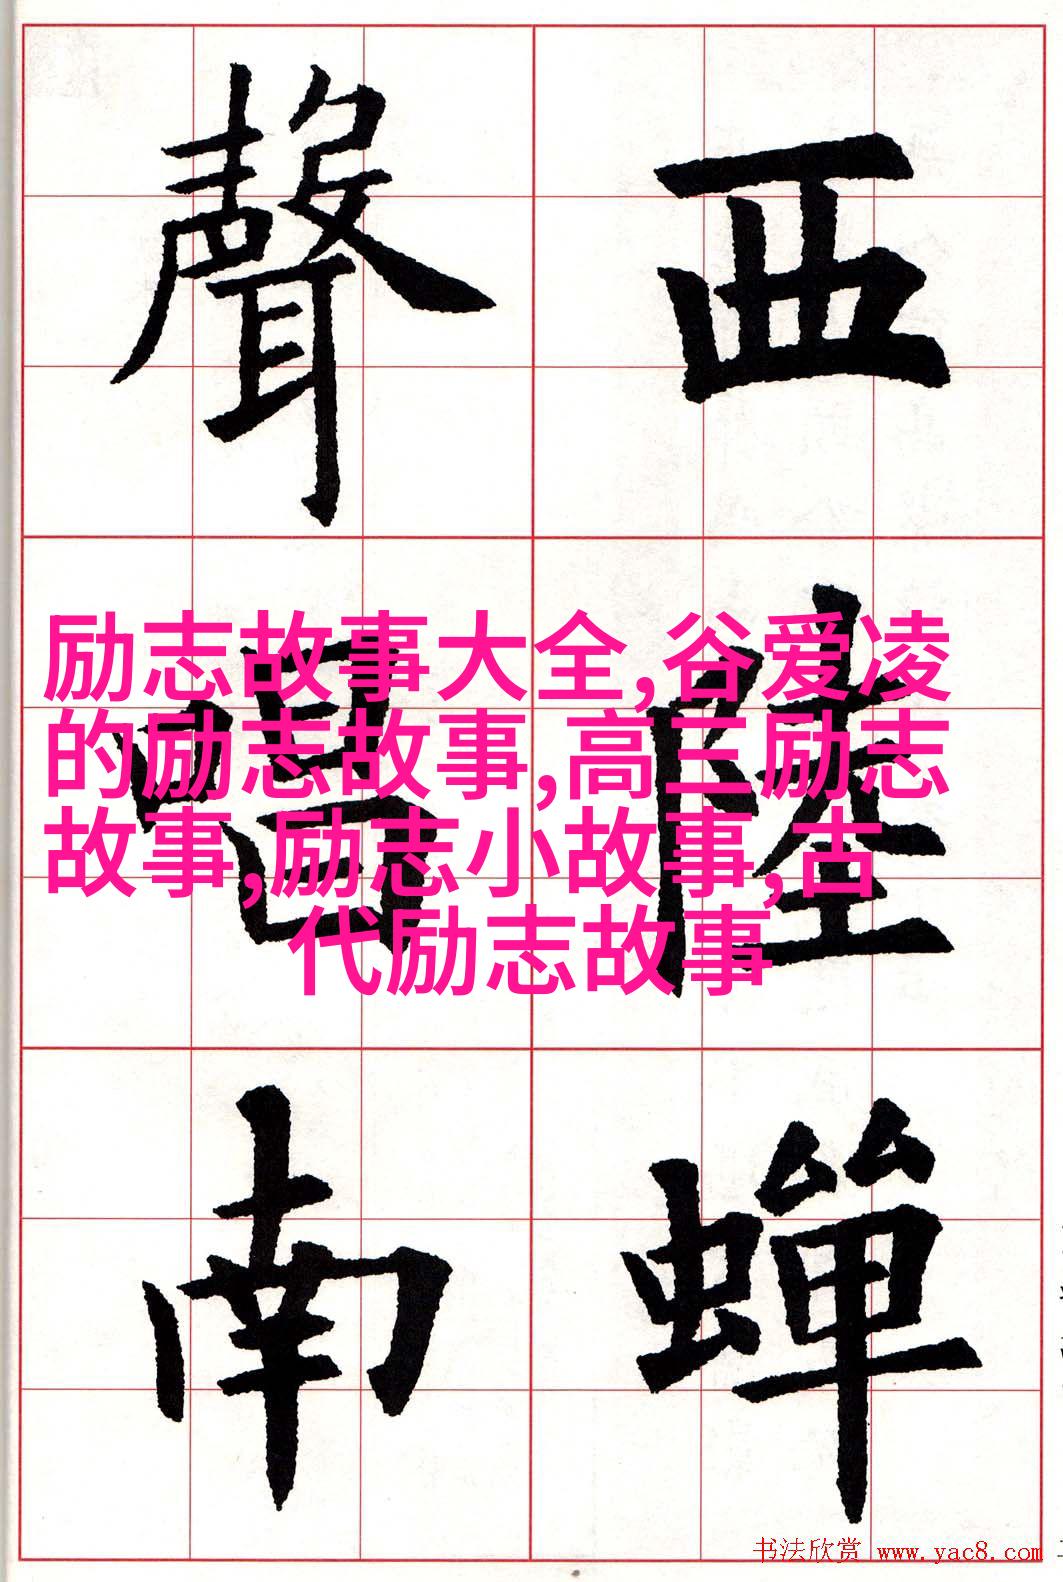 西陸蟬
聲唱南
励志故事大全,谷爱凌
的励志故事,高三励志
故事,励志小故事,古
代励志故事
书法欣赏 www.yac8.com